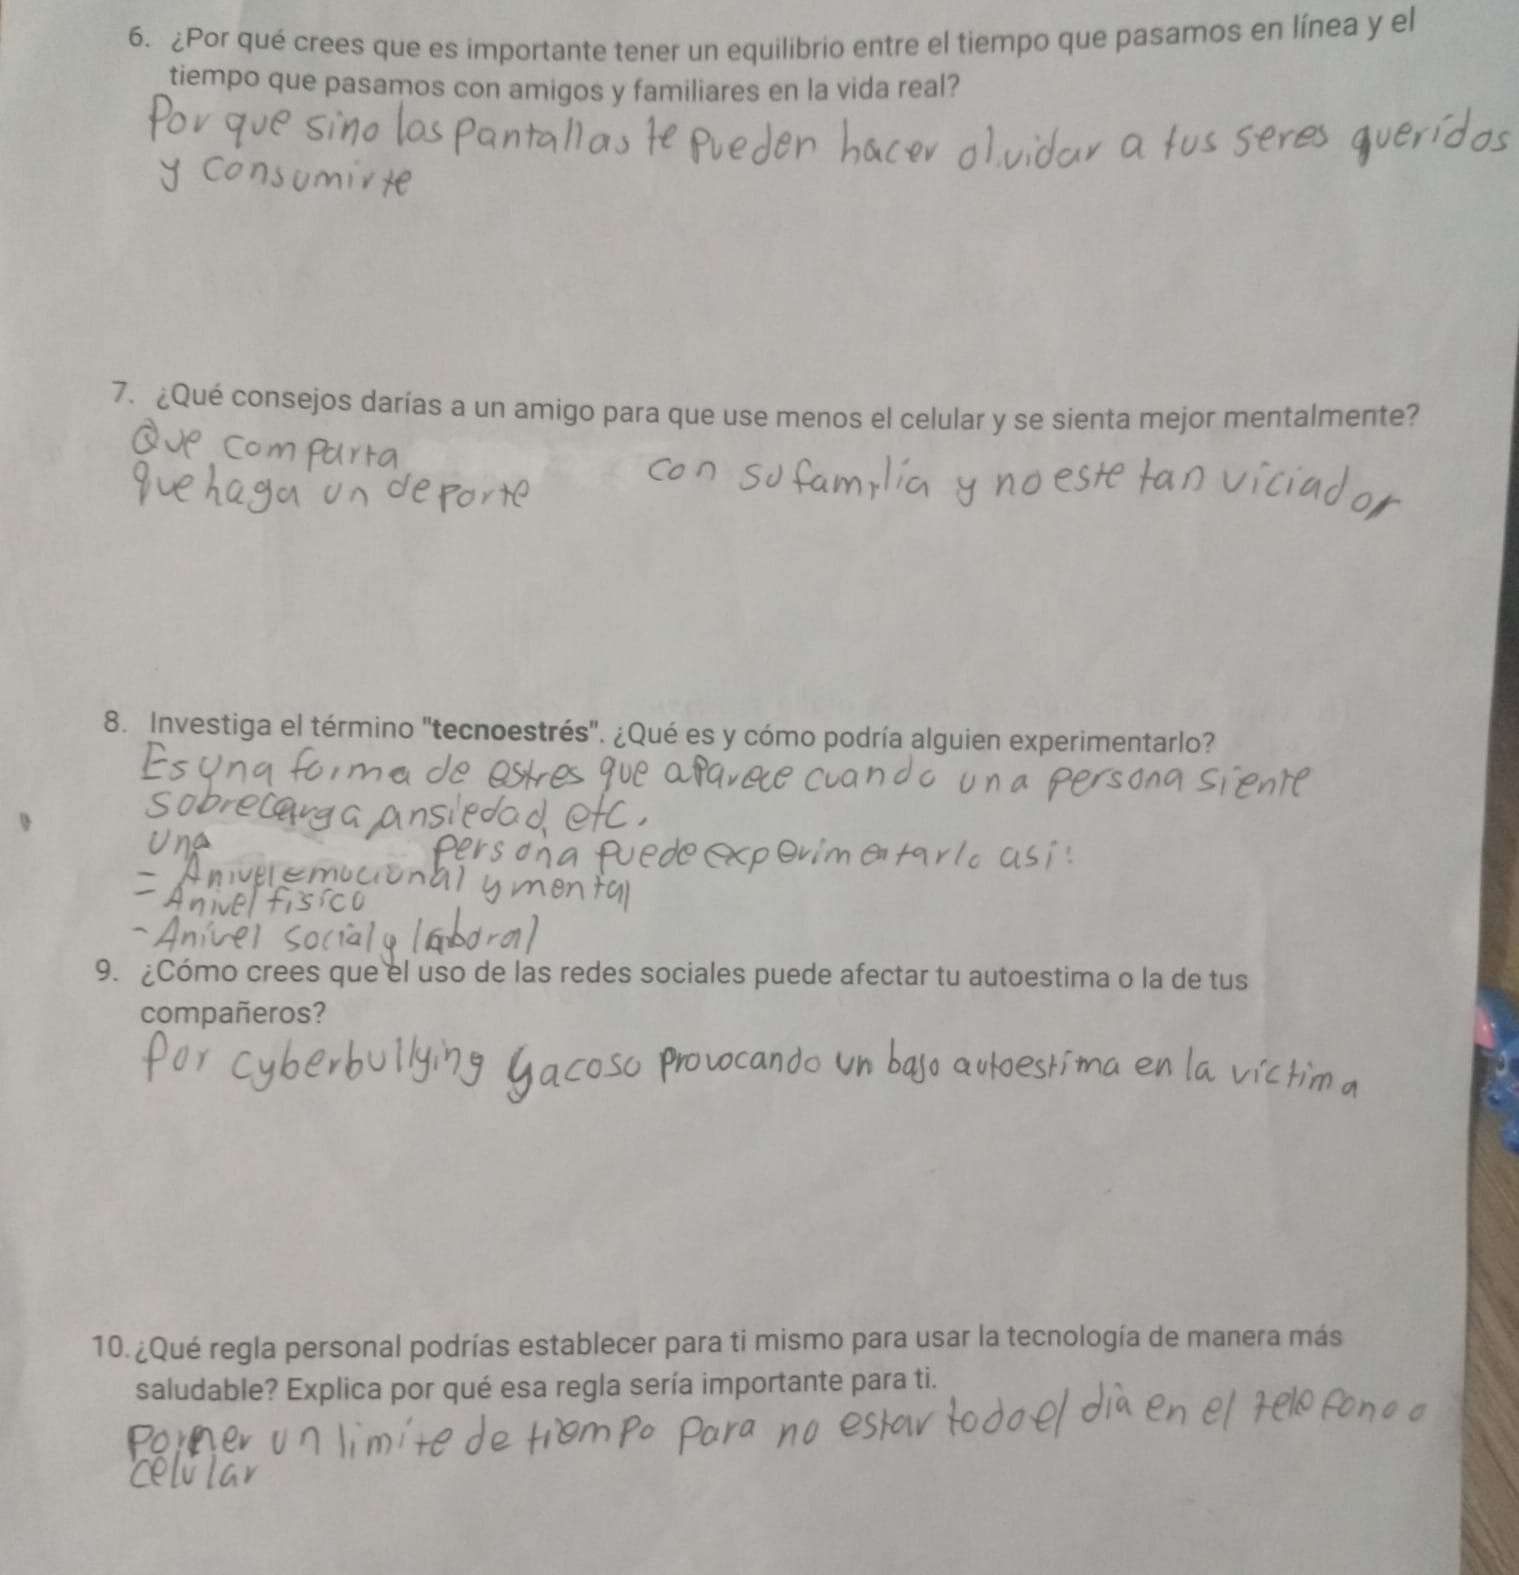 6. ¿Por qué crees que es importante tener un equilibrio entre el tiempo que pasamos en línea y el
tiempo que pasamos con amigos y familiares en la vida real?
Por que sino las pantallas te pueden hacer olvidar a tus seres queridos
y consumirte
7. ¿Qué consejos darías a un amigo para que use menos el celular y se sienta mejor mentalmente?
Que comparta con su familia y no este tan viciador
que haga un deporte
8. Investiga el término "tecnoestrés". ¿Qué es y cómo podría alguien experimentarlo?
Es una forma de estres que aparece cuando una persona siente
sobrecarga, ansiedad, etc.
Una persona puede experimentarlo asi:
- A nivel emocional y mental
- A nivel fisico
- A nivel social y laboral
9. ¿Cómo crees que el uso de las redes sociales puede afectar tu autoestima o la de tus
compañeros?
Por cyberbullying y acoso provocando un bajo autoestima en la victima
10. ¿Qué regla personal podrías establecer para ti mismo para usar la tecnología de manera más
saludable? Explica por qué esa regla sería importante para ti.
Poner un limite de tiempo para no estar todo el dia en el telefono o
celular